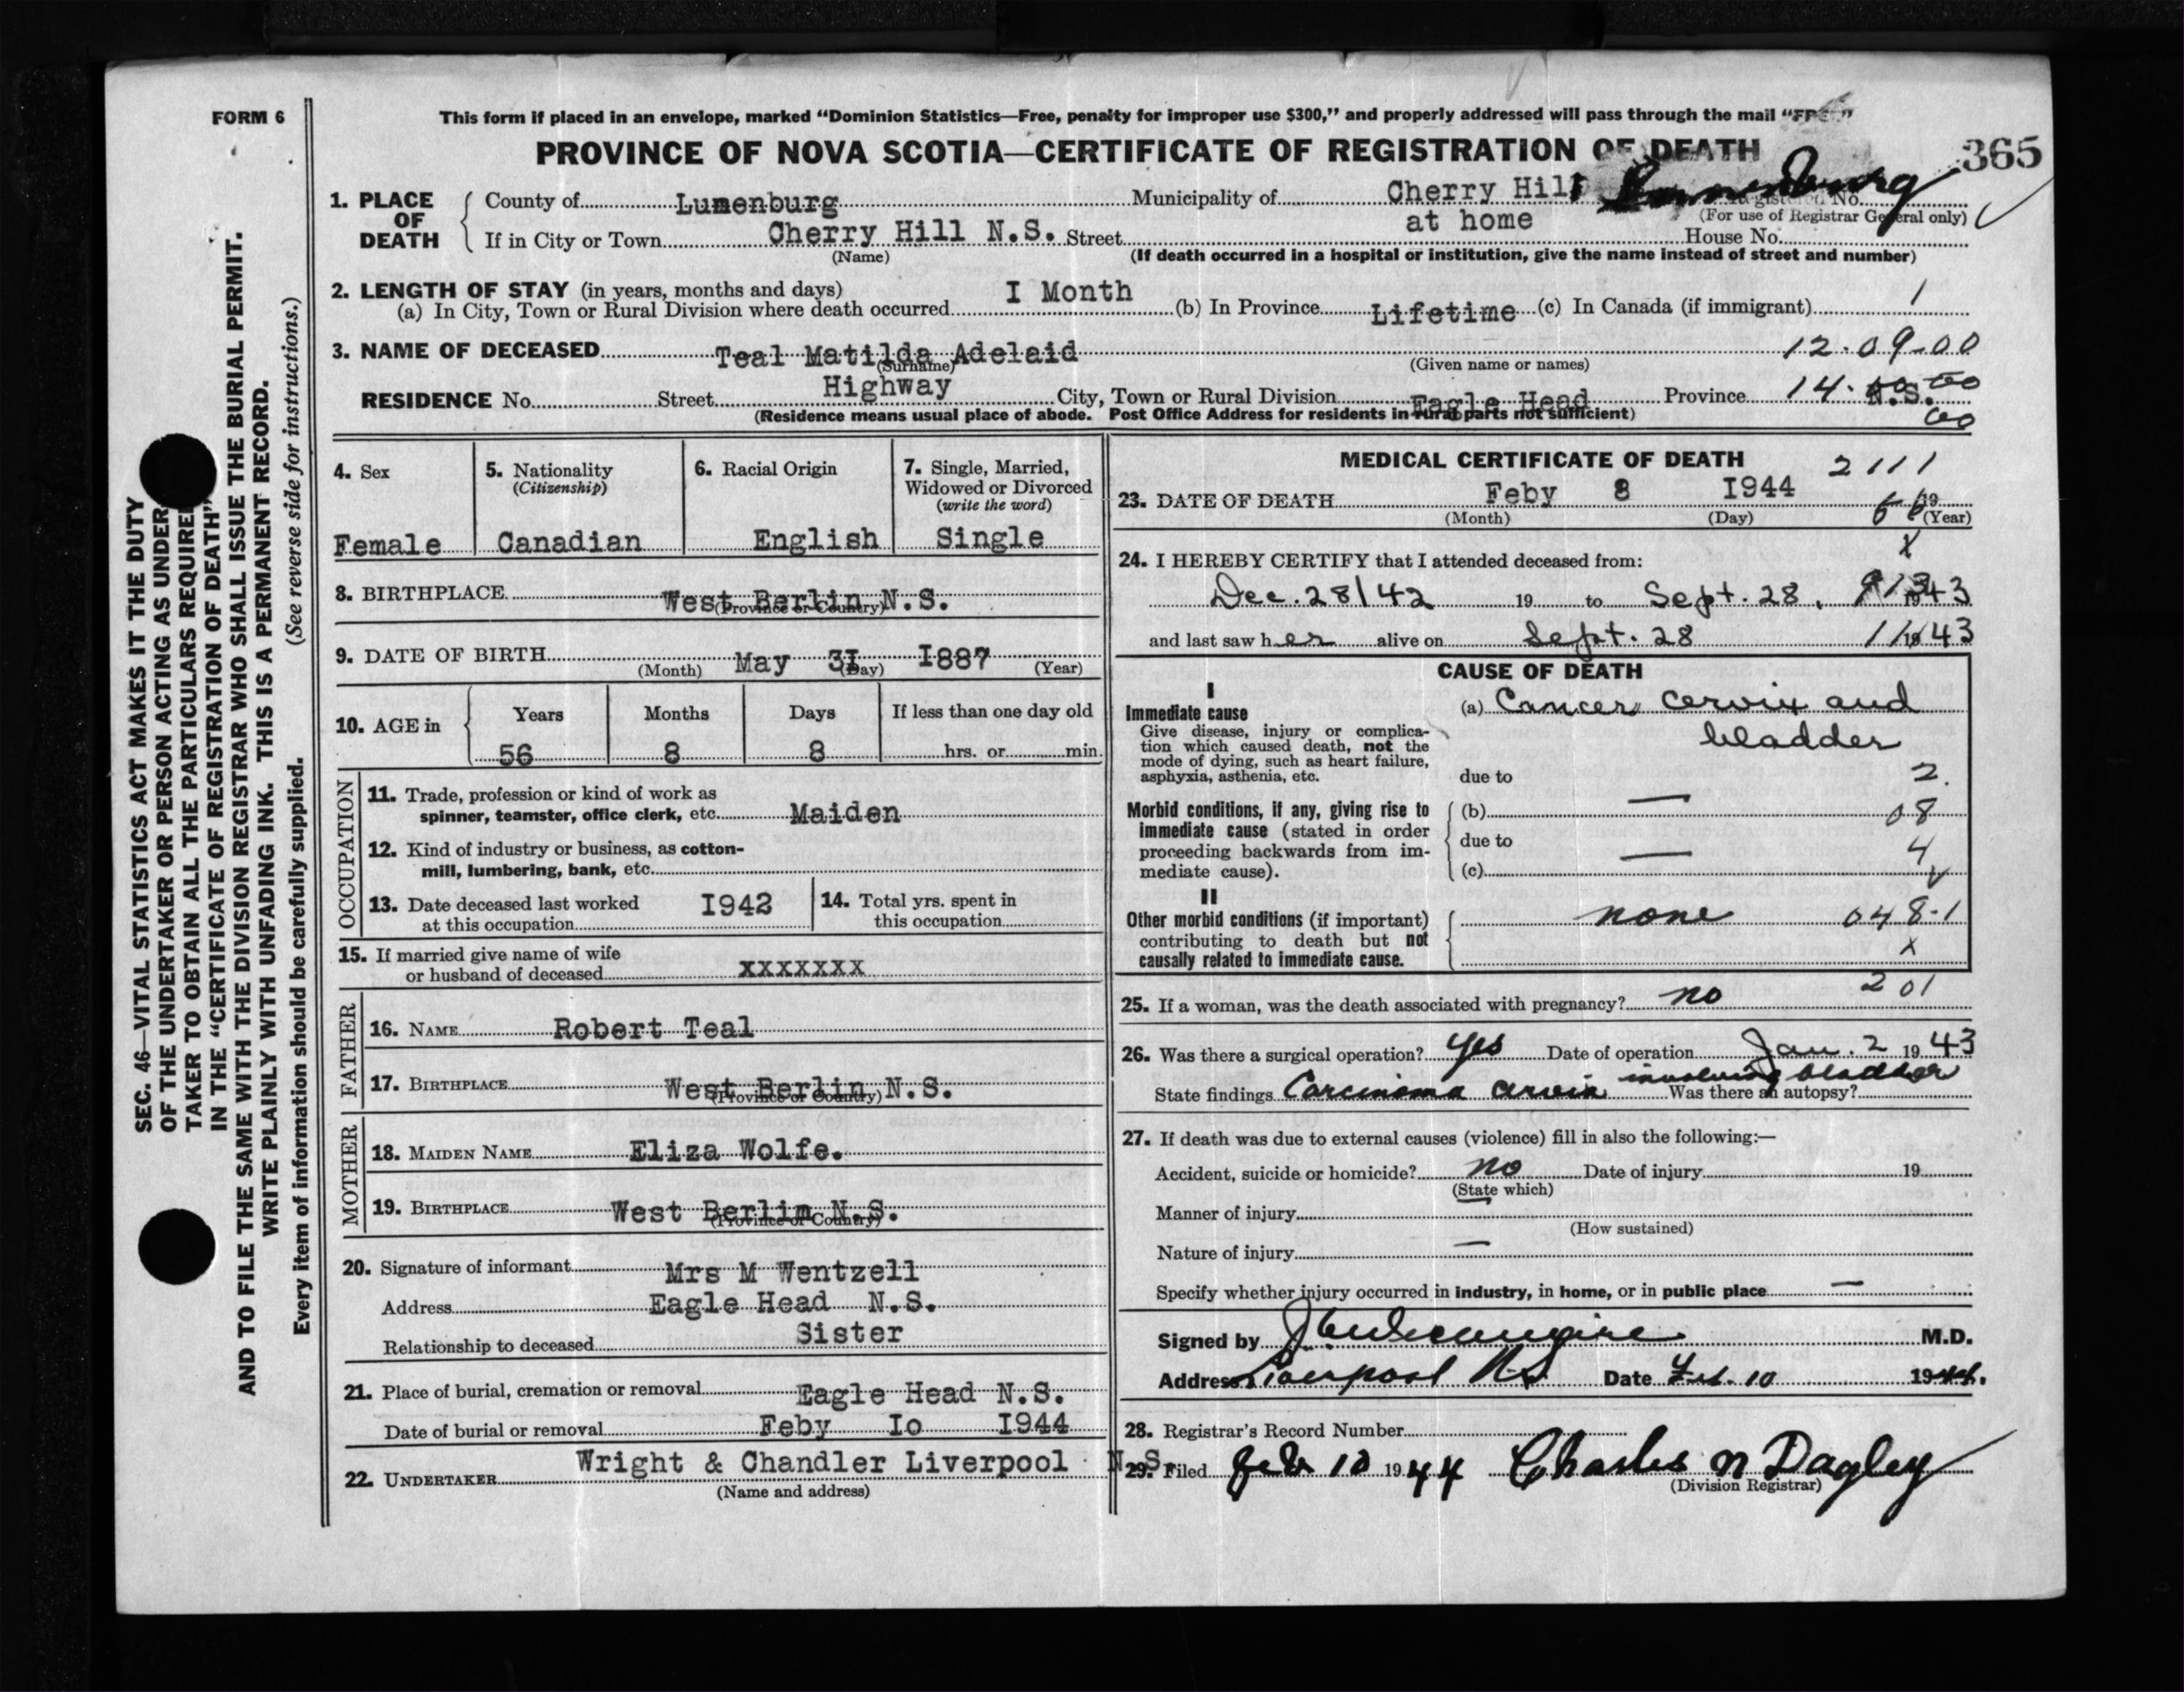 FORM 6
This form if placed in an envelope, marked "Dominion Statistics—Free, penalty for improper use $300," and properly addressed will pass through the mail
PROVINCE OF NOVA SCOTIA—CERTIFICATE OF REGISTRATION OF DEATH
365
1. PLACE OF DEATH
County of Lunenburg Municipality of Cherry Hill Lunenburg
Registered No.
(For use of Registrar General only)
If in City or Town Cherry Hill N.S. Street at home House No.
(Name) (If death occurred in a hospital or institution, give the name instead of street and number)
2. LENGTH OF STAY (in years, months and days)
(a) In City, Town or Rural Division where death occurred I Month (b) In Province Lifetime (c) In Canada (if immigrant)
3. NAME OF DECEASED Teal Matilda Adelaid 12-09-00
(Surname) (Given name or names)
RESIDENCE No. Street Highway City, Town or Rural Division Eagle Head Province N.S. 14-
(Residence means usual place of abode. Post Office Address for residents in rural parts not sufficient)
4. Sex
Female
5. Nationality
(Citizenship)
Canadian
6. Racial Origin
English
7. Single, Married,
Widowed or Divorced
(write the word)
Single
8. BIRTHPLACE West Berlin N.S.
(Province or Country)
9. DATE OF BIRTH May 3I I887
(Month) (Day) (Year)
10. AGE in
Years Months Days If less than one day old
56 8 8 hrs. or min.
OCCUPATION
11. Trade, profession or kind of work as
spinner, teamster, office clerk, etc. Maiden
12. Kind of industry or business, as cotton-
mill, lumbering, bank, etc.
13. Date deceased last worked
at this occupation I942
14. Total yrs. spent in
this occupation
15. If married give name of wife
or husband of deceased xxxxxxx
FATHER
16. NAME Robert Teal
17. BIRTHPLACE West Berlin N.S.
(Province or Country)
MOTHER
18. MAIDEN NAME Eliza Wolfe.
19. BIRTHPLACE West Berlin N.S.
(Province or Country)
20. Signature of informant Mrs M Wentzell
Address Eagle Head N.S.
Relationship to deceased Sister
21. Place of burial, cremation or removal Eagle Head N.S.
Date of burial or removal Feby Io I944
22. UNDERTAKER Wright & Chandler Liverpool N.S.
(Name and address)
MEDICAL CERTIFICATE OF DEATH
2111
23. DATE OF DEATH Feby 8 I944 19
(Month) (Day) (Year)
24. I HEREBY CERTIFY that I attended deceased from:
x
Dec. 28/42 19 to Sept. 28, 1943
and last saw her alive on Sept. 28 1943
CAUSE OF DEATH
I
Immediate cause
Give disease, injury or complica-
tion which caused death, not the
mode of dying, such as heart failure,
asphyxia, asthenia, etc.
(a) Cancer cervix and
bladder
due to 2.
Morbid conditions, if any, giving rise to
immediate cause (stated in order
proceeding backwards from im-
mediate cause).
(b) — 08
due to 4
(c) —
II
Other morbid conditions (if important)
contributing to death but not
causally related to immediate cause.
none 048-1
x
25. If a woman, was the death associated with pregnancy? no 201
26. Was there a surgical operation? yes Date of operation Jan. 2 1943
State findings Carcinoma cervix involving bladder Was there an autopsy?
27. If death was due to external causes (violence) fill in also the following:—
Accident, suicide or homicide? no Date of injury 19
(State which)
Manner of injury —
(How sustained)
Nature of injury —
Specify whether injury occurred in industry, in home, or in public place —
Signed by M.D.
Address Liverpool N.S. Date Feb. 10 1944.
28. Registrar's Record Number
29. Filed Feb 10 1944 Charles N Dagley
(Division Registrar)
SEC. 46—VITAL STATISTICS ACT MAKES IT THE DUTY
OF THE UNDERTAKER OR PERSON ACTING AS UNDER
TAKER TO OBTAIN ALL THE PARTICULARS REQUIRE
IN THE "CERTIFICATE OF REGISTRATION OF DEATH"
AND TO FILE THE SAME WITH THE DIVISION REGISTRAR WHO SHALL ISSUE THE BURIAL PERMIT.
WRITE PLAINLY WITH UNFADING INK. THIS IS A PERMANENT RECORD.
Every item of information should be carefully supplied. (See reverse side for instructions.)